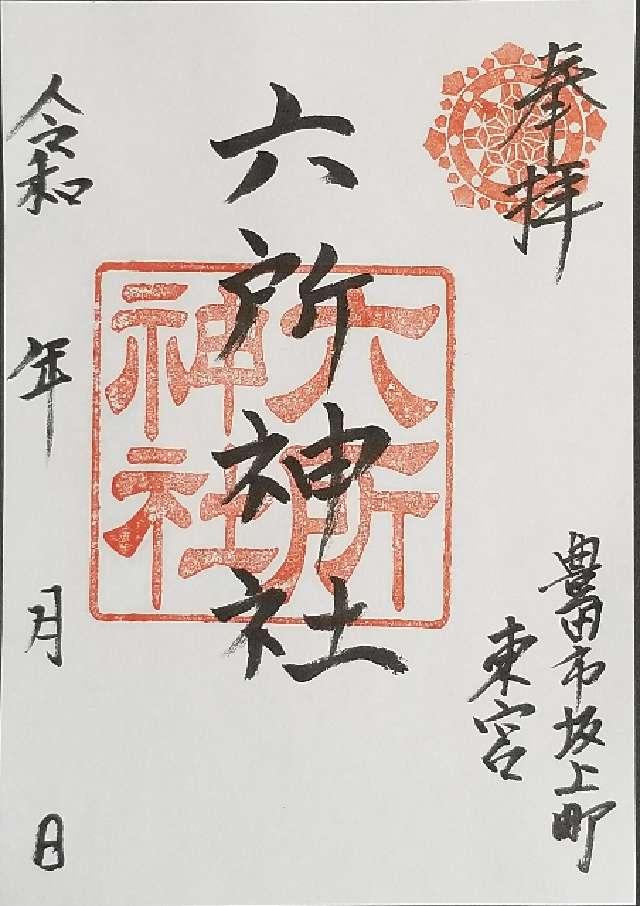 奉拝
豊田市坂上町
東宮
六所神社
六所
神社
令和 年 月 日